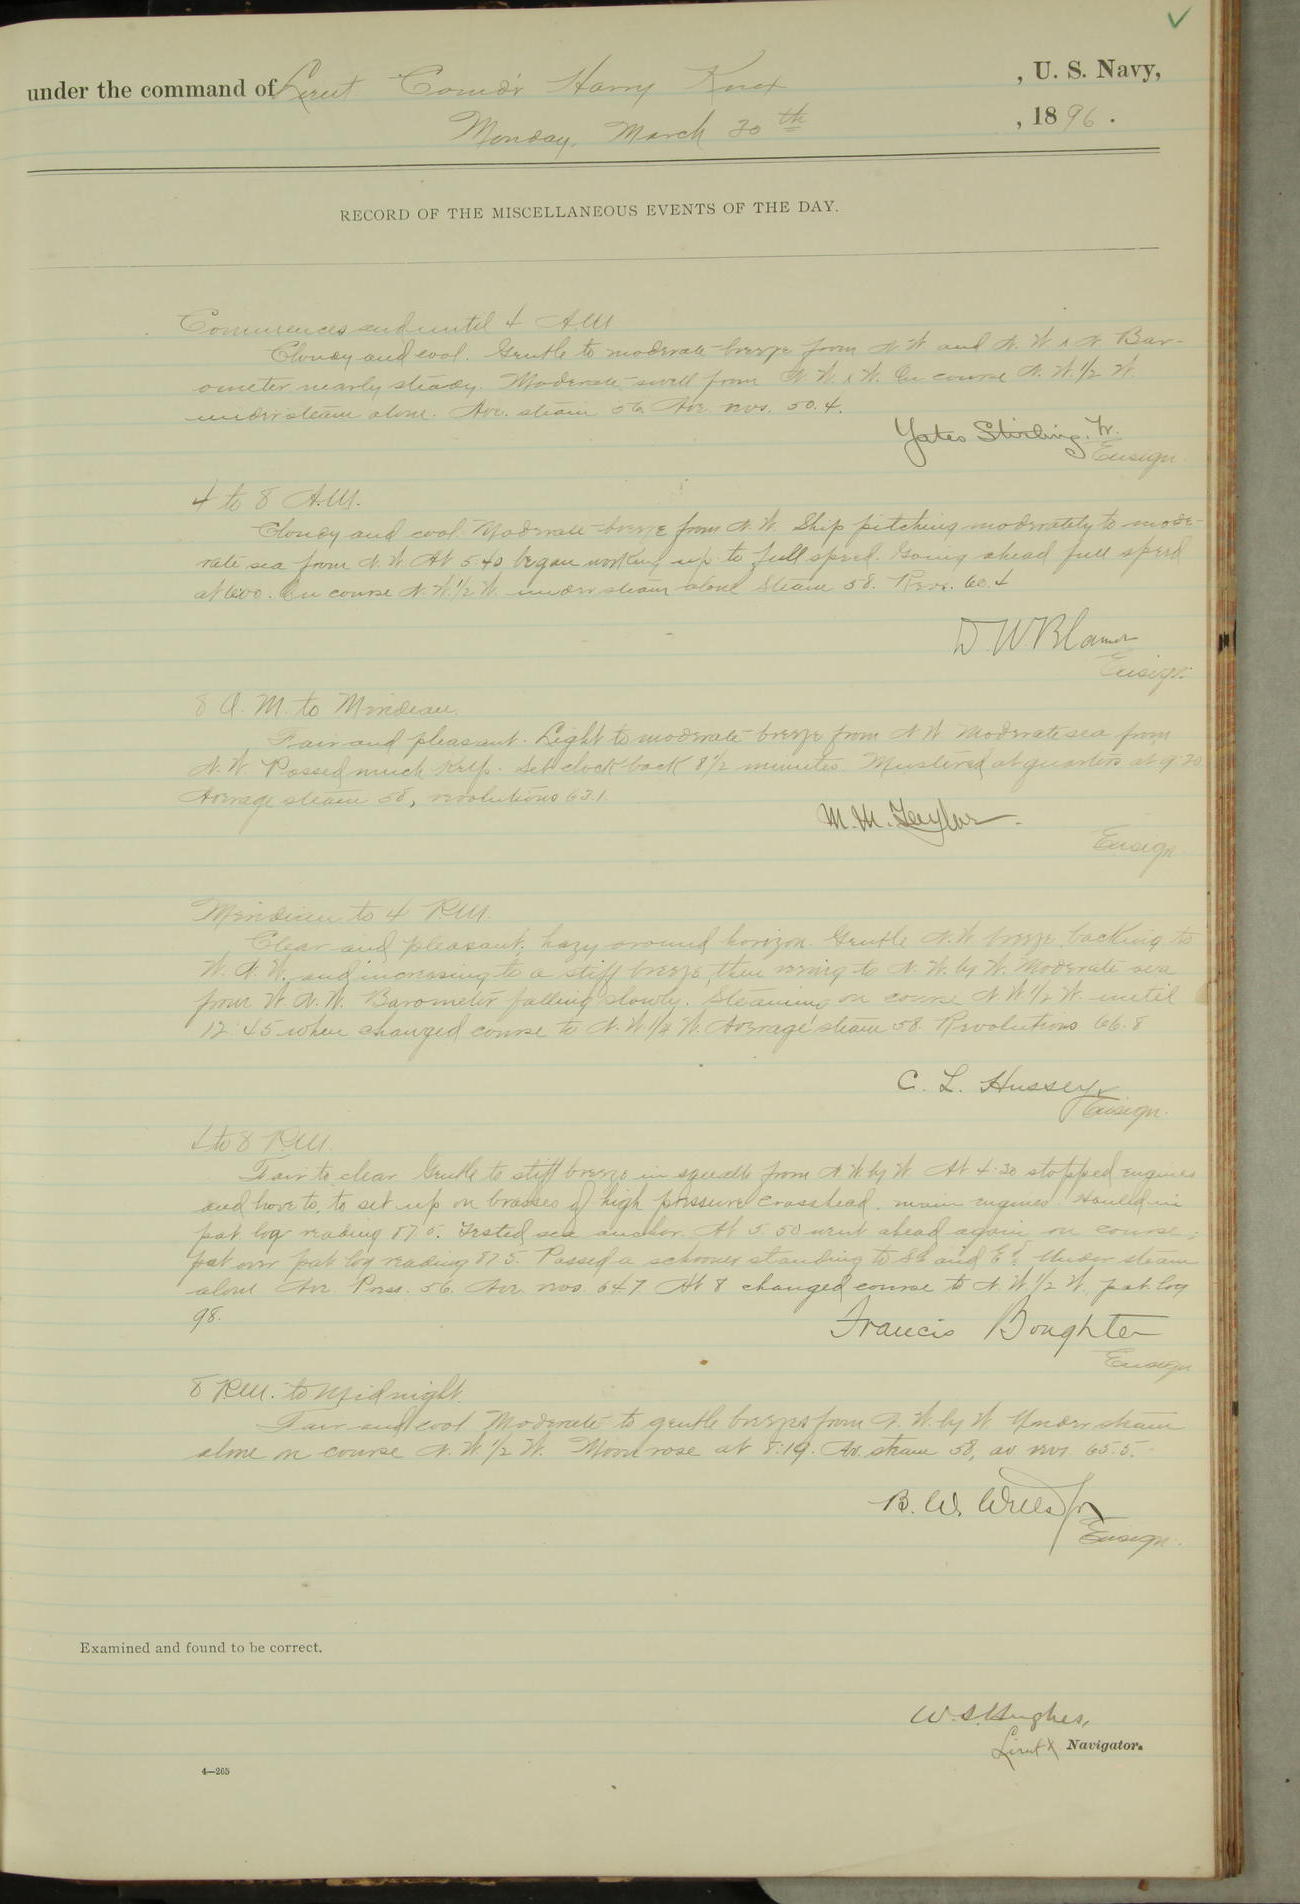 under the command of Lieut Comd'r Harry Knox , U. S. Navy,
Monday, March 30th , 1896.
RECORD OF THE MISCELLANEOUS EVENTS OF THE DAY.
Commences and until 4 A.M.
Cloudy and cool. Gentle to moderate breeze from N.W. and N.W. x N. Bar-
ometer nearly steady. Moderate swell from N.W. x W. On course N.W. 1/2 W.
under steam alone. Ave. steam 56 Ave. revs. 50.4.
Yates Stirling, Jr.
Ensign
4 to 8 A.M.
Cloudy and cool. Moderate breeze from N.W. Ship pitching moderately to mode-
rate sea from N.W. At 5.40 began working up to full speed. Going ahead full speed
at 6.00. On course N.W. 1/2 W. under steam alone Steam 58. Revs. 60.4
D. W. Blamer
Ensign.
8 A.M. to Meridian.
Fair and pleasant. Light to moderate breeze from N.W. Moderate sea from
N.W. Passed much kelp. Set clock back 8 1/2 minutes. Mustered at quarters at 9.30
Average steam 58, revolutions 63.1.
M. M. Taylor.
Ensign
Meridian to 4 P.M.
Clear and pleasant, hazy around horizon. Gentle N.W. breeze, backing to
W.N.W. and increasing to a stiff breeze, then veering to N.W. by W. Moderate sea
from W.N.W. Barometer falling slowly. Steaming on course N.W. 1/2 W. until
12.45 when changed course to N.W. 1/4 W. Average steam 58. Revolutions 66.8
C. L. Hussey
Ensign.
4 to 8 P.M.
Fair to clear. Gentle to stiff breeze in squalls from N.W. by W. At 4.30 stopped engines
and hove to, to set up on brasses of high pressure crosshead, main engines. Hauled in
pat log reading 87.5. Tested sea anchor. At 5.50 went ahead again on course;
put over pat log reading 87.5. Passed a schooner standing to S'd and E'd. Under steam
alone Ave. Press. 56. Ave. revs. 64.7 At 8 changed course to N.W. 1/2 W., pat log
98.
Francis Boughter
Ensign
8 P.M. to Midnight.
Fair and cool. Moderate to gentle breezes from N.W. by W. Under steam
alone on course N.W. 1/2 W. Moon rose at 8:19. Av. steam 58, av revs. 65.5.
B. W. Wells Jr
Ensign.
Examined and found to be correct.
W. S. Hughes,
Lieut & Navigator.
4—265